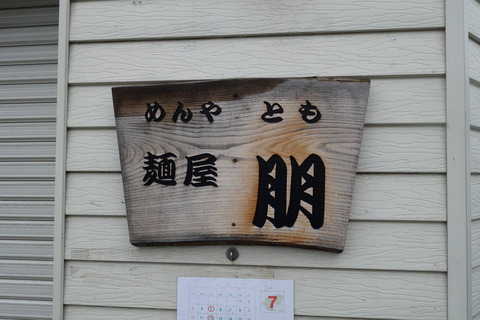 めんや とも
麺屋 朋
7